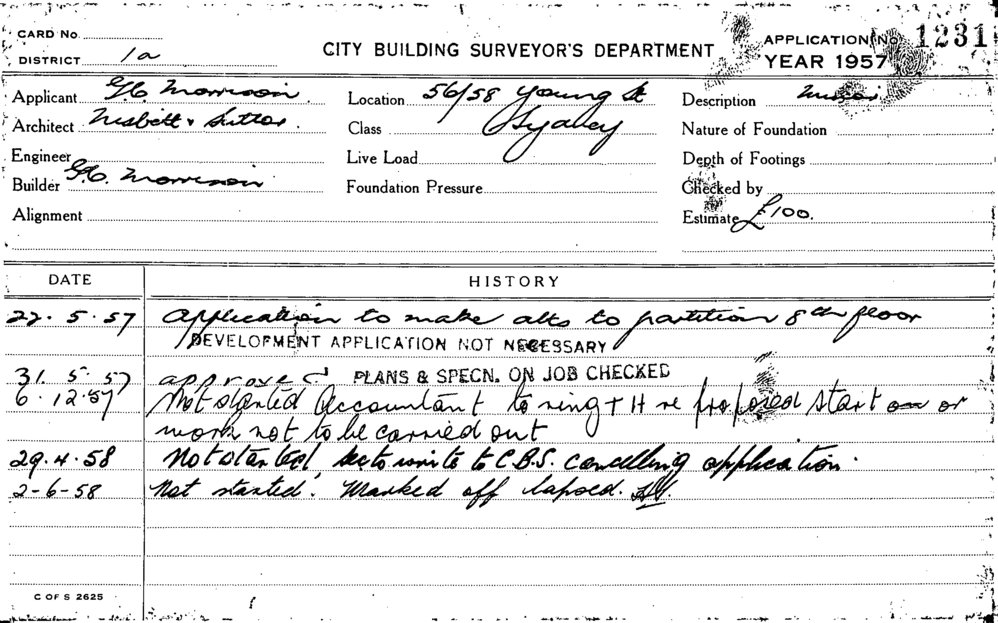 CARD No.
DISTRICT 1a
CITY BUILDING SURVEYOR'S DEPARTMENT
APPLICATION No. 1231
YEAR 1957
Applicant G.C. Morrison
Location 56/58 Young St
Sydney
Description minor
Architect Nesbitt &
Class
Nature of Foundation
Engineer
Live Load
Depth of Footings
Builder G.C. Morrison
Foundation Pressure
Checked by
Alignment
Estimate £100.
DATE HISTORY
22.5.57 Application to make alts to partition 8th floor
DEVELOPMENT APPLICATION NOT NECESSARY
31.5.57 approved PLANS & SPECN. ON JOB CHECKED
6.12.57 Not started Accountant to ring re proposed start or
work not to be carried out
29.4.58 Not started, to write to C.B.S. cancelling application.
2-6-58 Not started. Marked off lapsed.
C OF S 2625